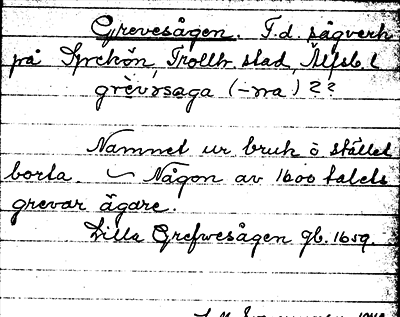 Grevesågen. F.d. sågverk
på Spekön, Trollh. stad, Älfsb. l
grèvsaga (-na) ??
Namnet ur bruk o stället
borta. ~ Någon av 1600 talets
grevar ägare.
Lilla Grefwesågen gb. 1659.